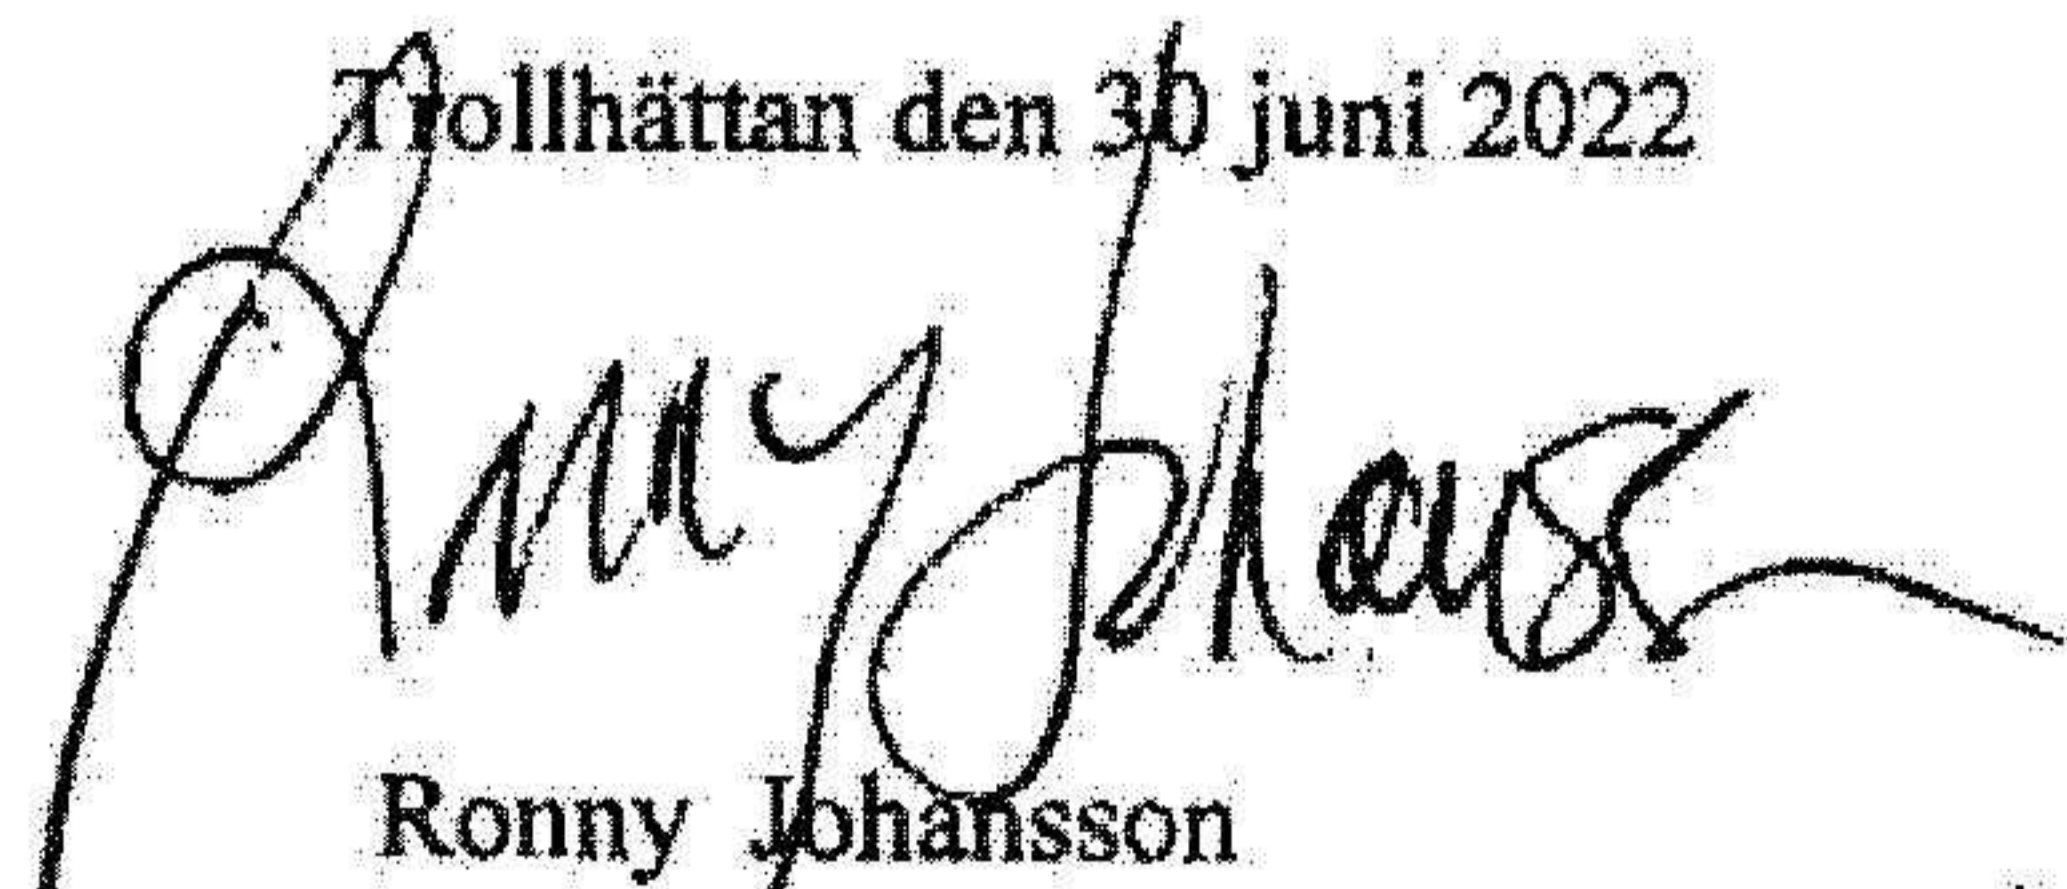 Trollhättan den 30 juni 2022
Ronny Johansson
Ronny Johansson